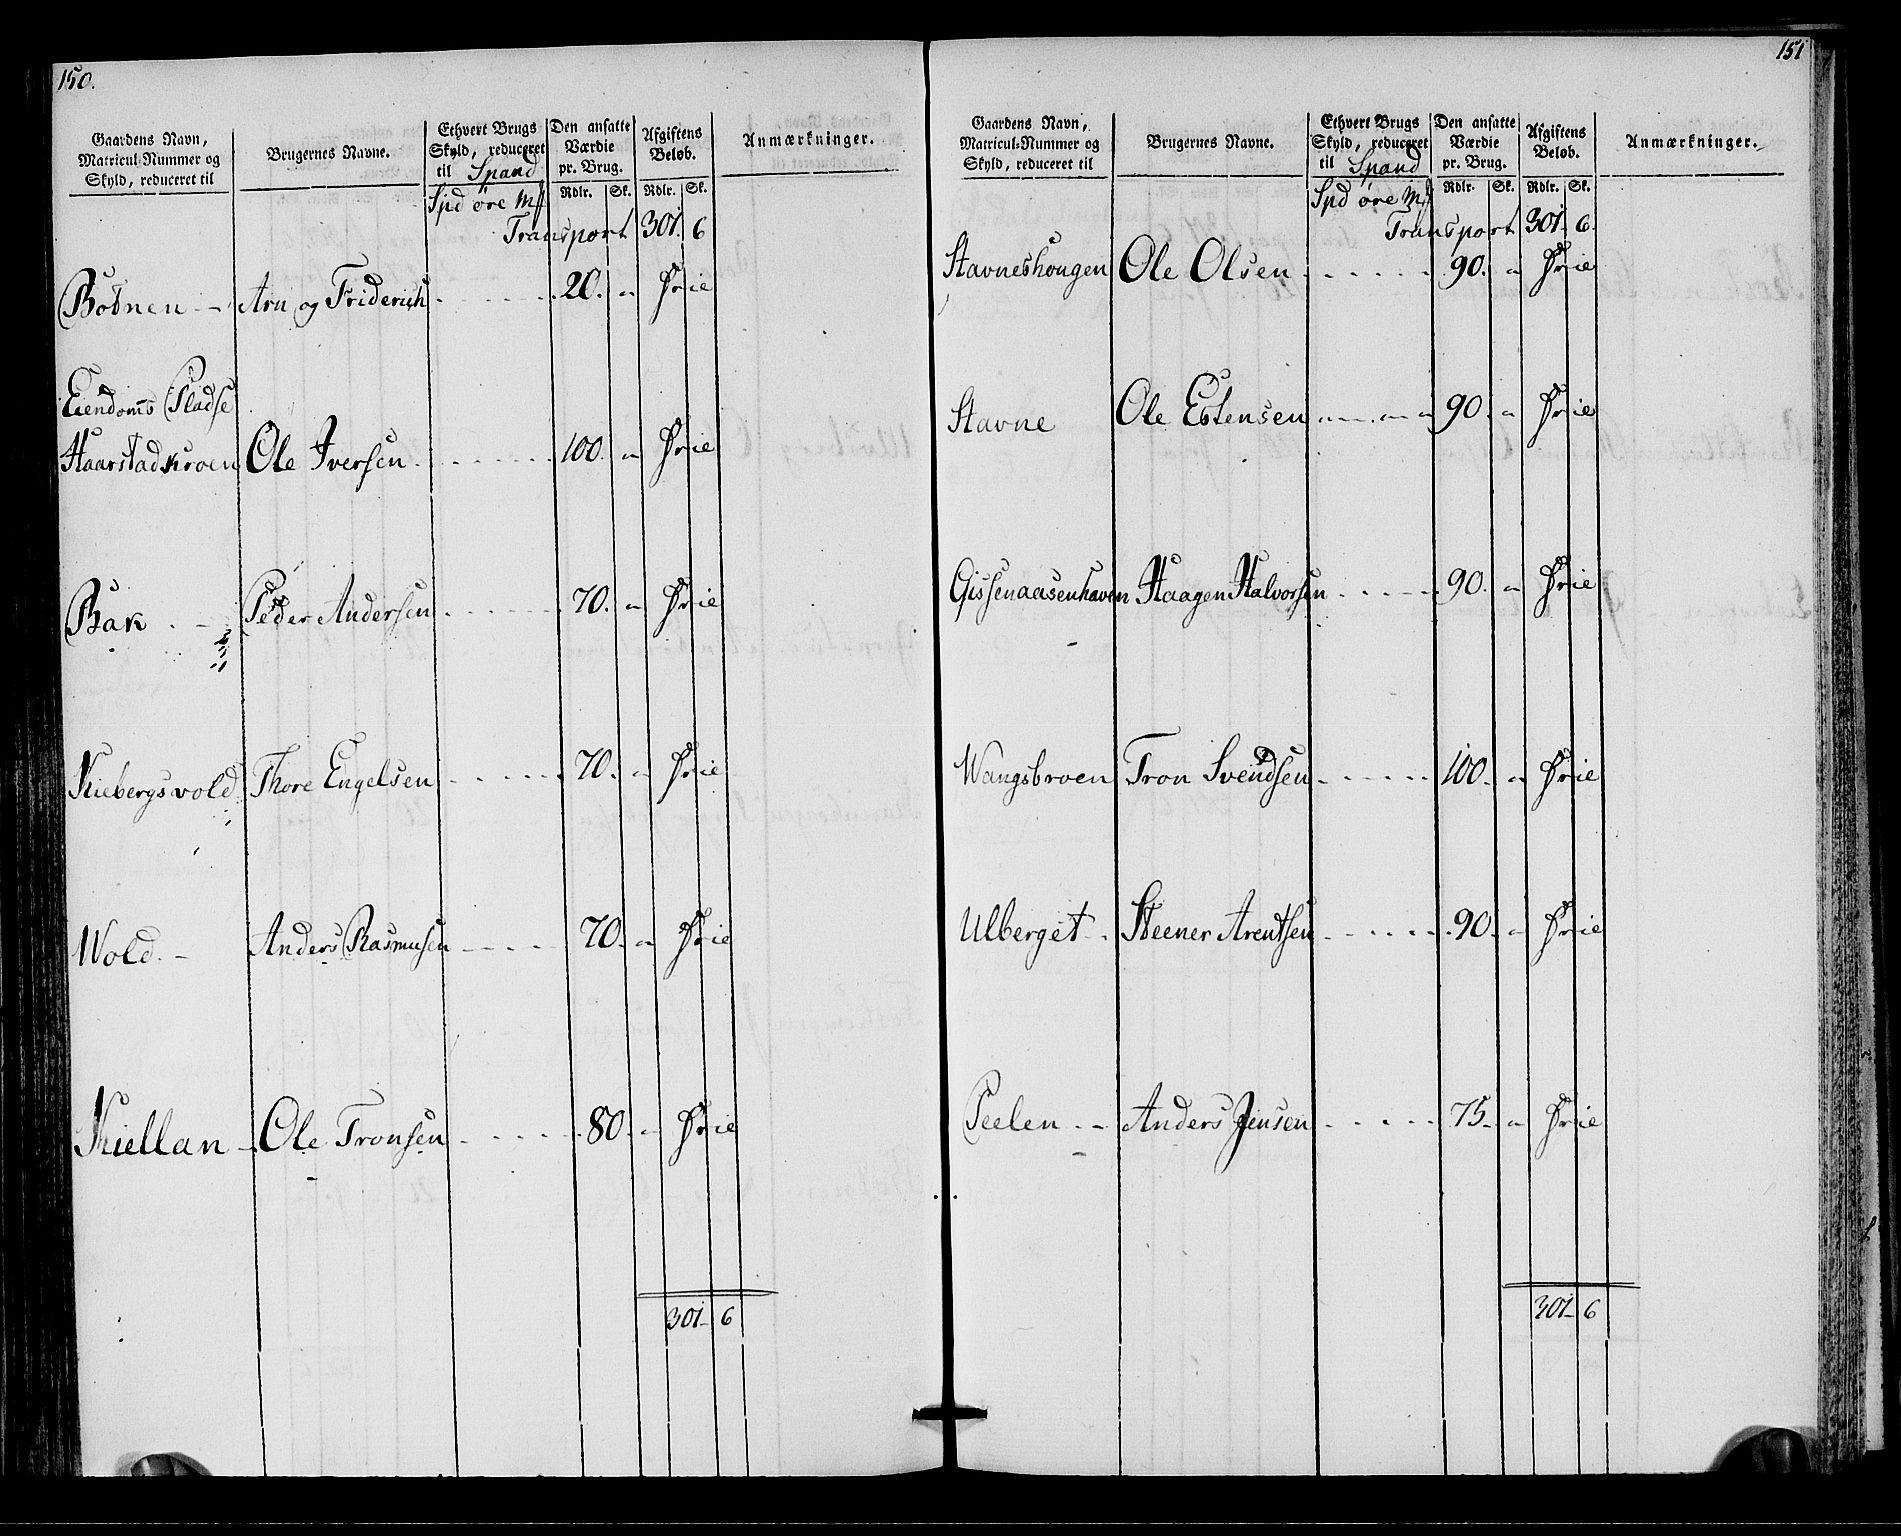 150.
Gaardens Navn, Matricul-Nummer og Skyld, reduceret til
Brugernes Navne.
Ethvert Brugs Skyld, reduceret til Spand
Den ansatte Værdie pr. Brug.
Afgiftens Beløb.
Anmærkninger.
Rdlr. Sk. Rdlr. Sk.
Spd øre Mf
Transport 301. 6
Botnen Arn og Friderich 20. " Frie
Eiendoms Pladse
Haarstadkroen Ole Iversen 100. " Frie
Bak Peder Andersen 70. " Frie
Kiebergsvold Thore Engelsen 70. " Frie
Wold Anders Rasmusen 70. " Frie
Kiellan Ole Tronsen 80. " Frie
301 6
151
Gaardens Navn, Matricul-Nummer og Skyld, reduceret til
Brugernes Navne.
Ethvert Brugs Skyld, reduceret til Spand
Den ansatte Værdie pr. Brug.
Afgiftens Beløb.
Anmærkninger.
Rdlr. Sk. Rdlr. Sk.
Spd øre Mf
Transport 301. 6.
Stavneshougen Ole Olsen 90. " Frie
Stavne Ole Estensen 90. " Frie
Gissenaasenhaven Haagen Halvorsen 90. " Frie
Wangsbroen Tron Svendsen 100. " Frie
Ulberget Steener Arentsen 90. " Frie
Peelen Anders Jensen 75. " Frie
301 6